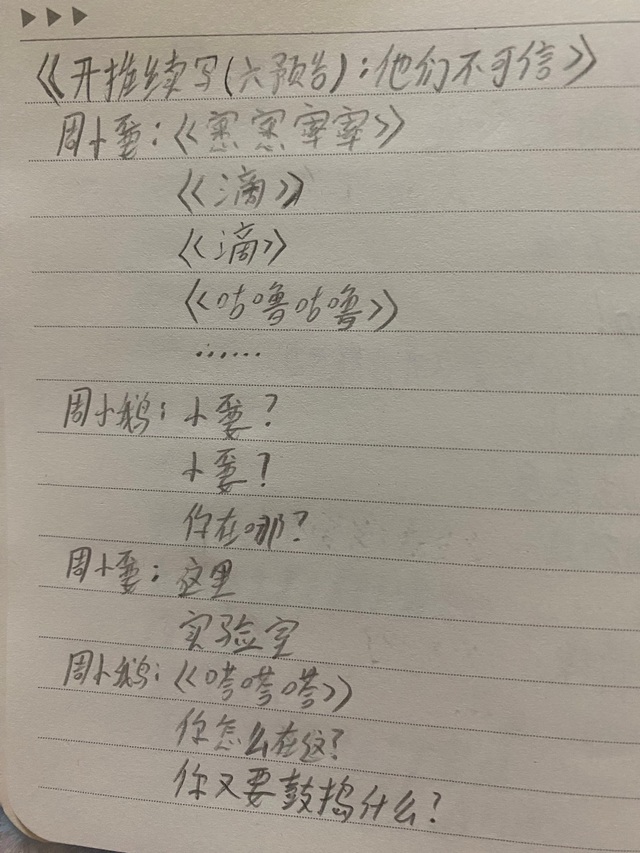 《开推续写(六预告):他们不可信》
周小要:《窸窸窣窣》
《滴》
《滴》
《咕噜咕噜》
……
周小鹅:小要?
小要?
你在哪?
周小要:这里
实验室
周小鹅:《嗒嗒嗒》
你怎么在这?
你又要鼓捣什么?